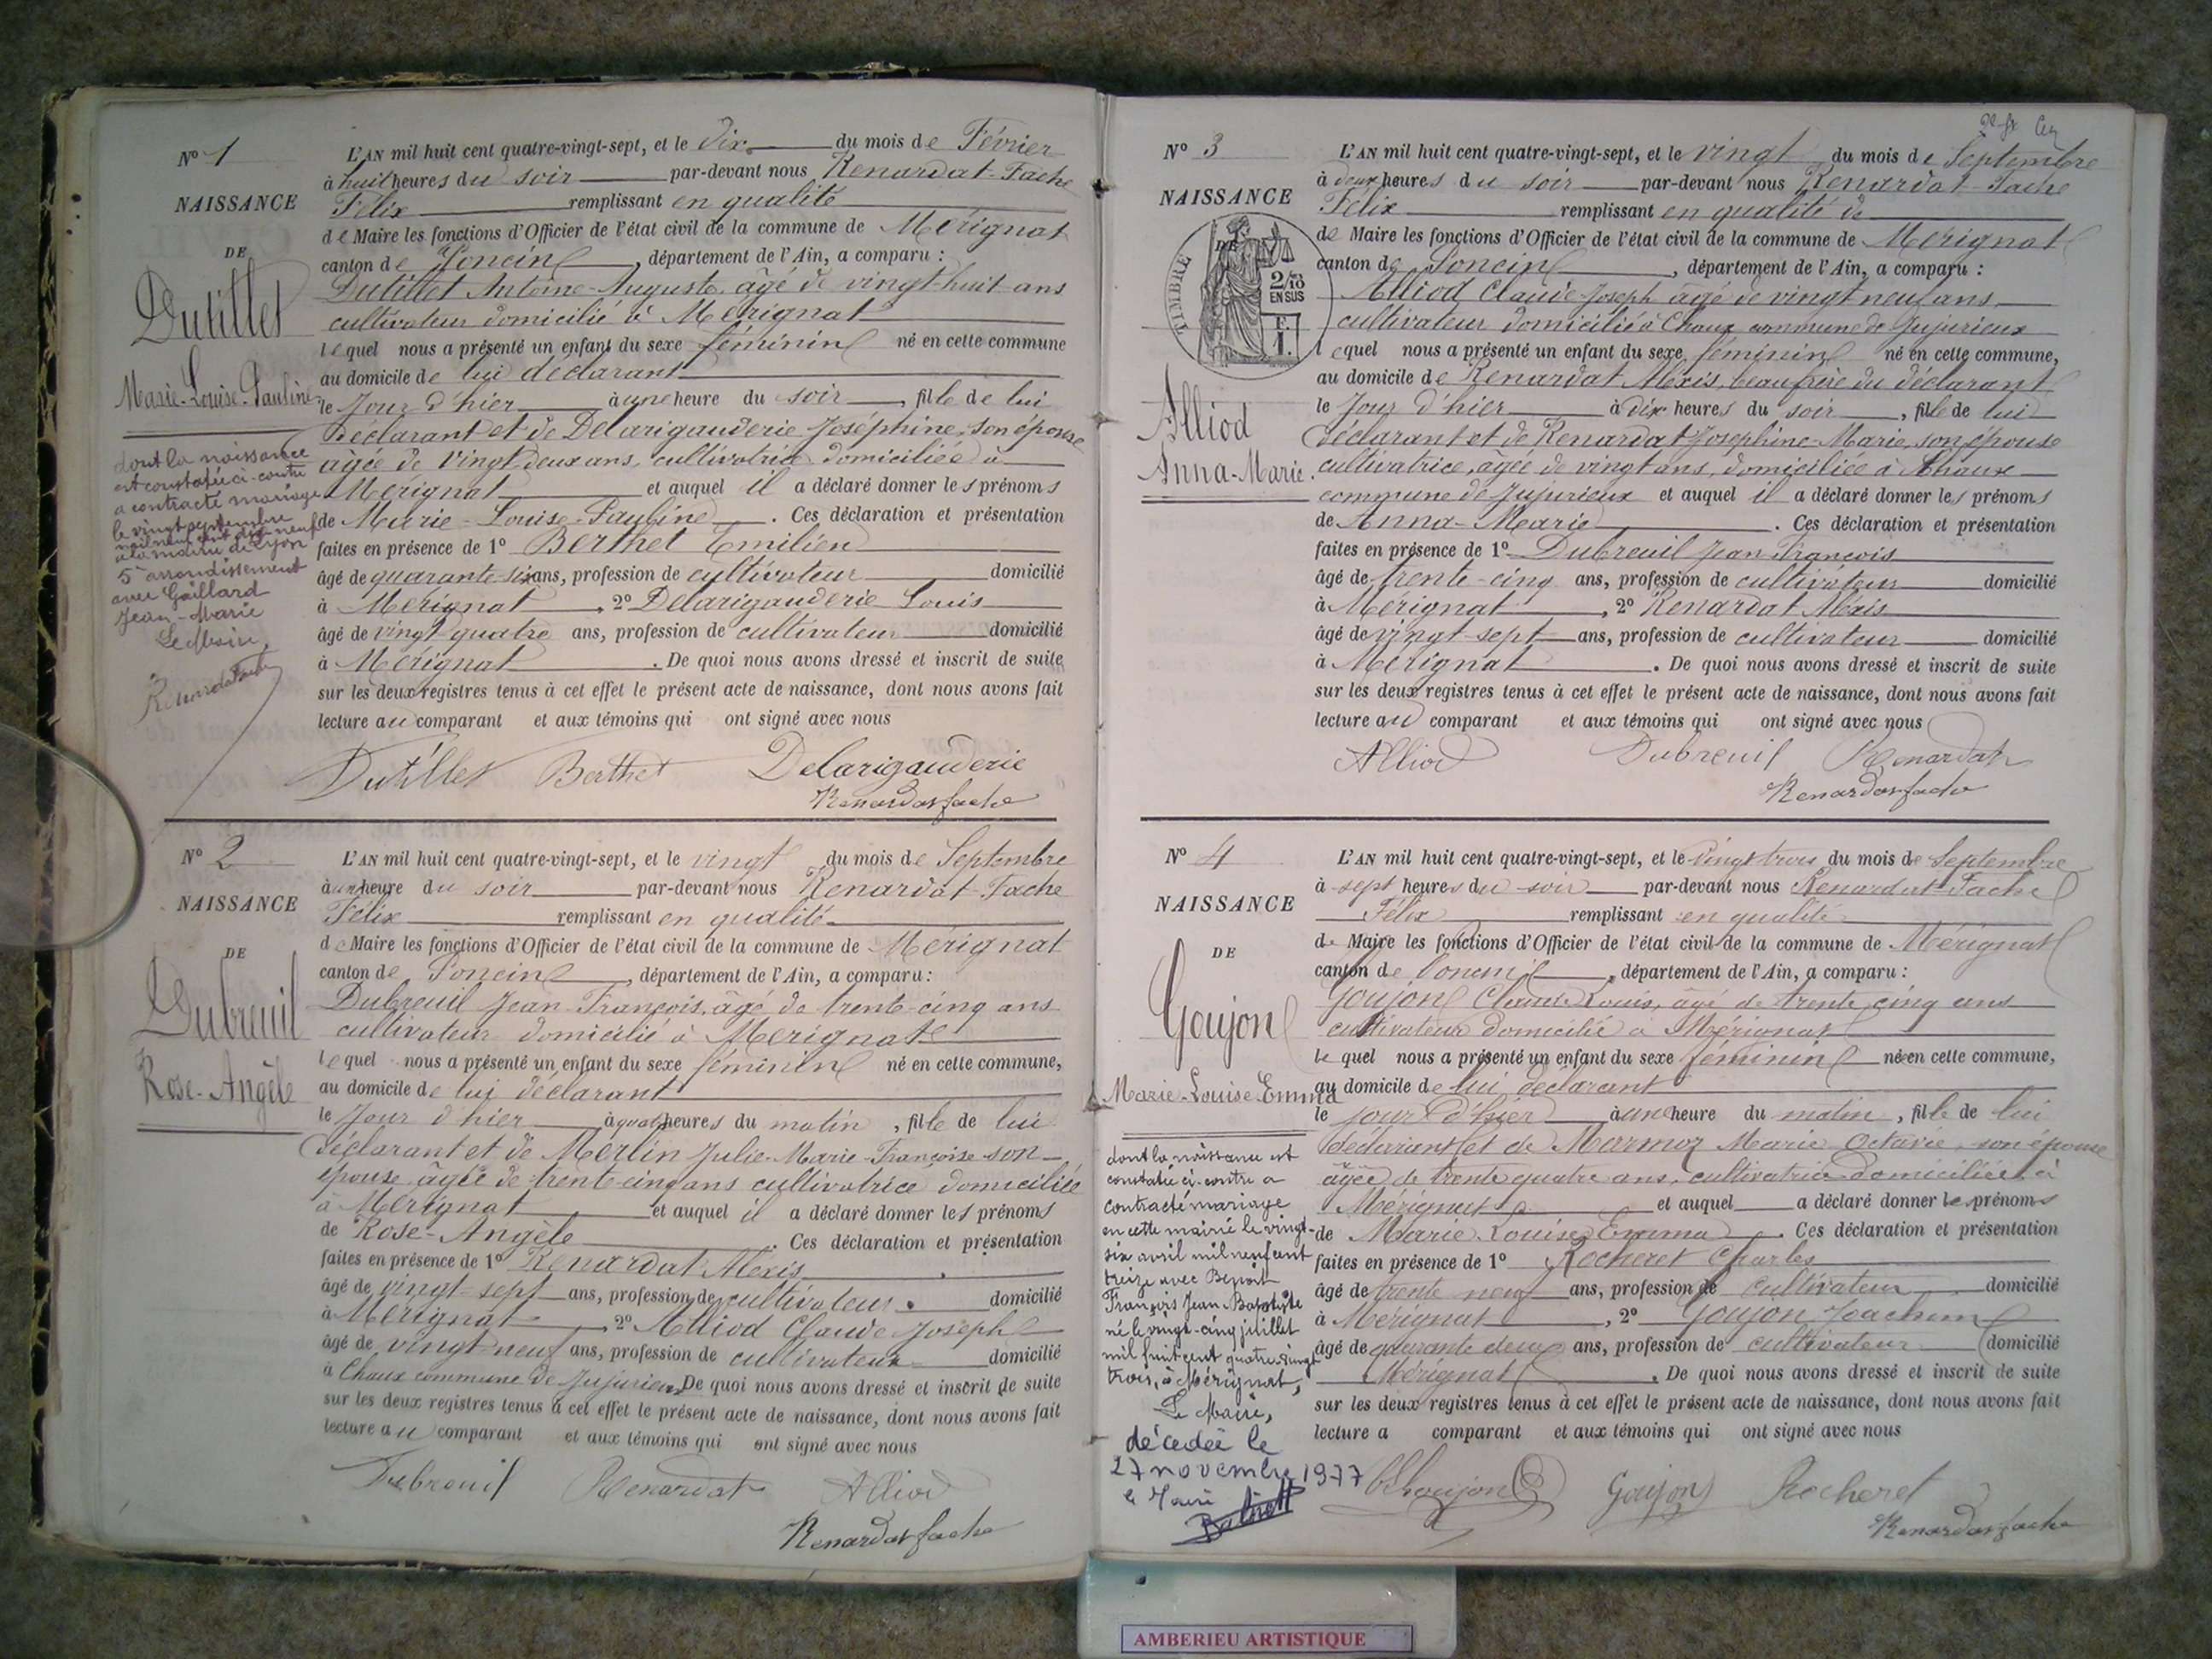 N° 1
NAISSANCE
DE
Dutillet
Marie-Louise-Pauline
dont la naissance
est constatée ci-contre
a contracté mariage
le vingt septembre
mil neuf cent dix neuf
à la mairie de Lyon
5e arrondissement
avec Gaillard
Jean-Marie
Le Maire,
Renardat Fache
L'AN mil huit cent quatre-vingt-sept, et le dix du mois de Février
à huit heures du soir par-devant nous Renardat-Fache
Félix remplissant en qualité
de Maire les fonctions d'Officier de l'état civil de la commune de Mérignat
canton de Poncin, département de l'Ain, a comparu :
Dutillet Antoine-Auguste, âgé de vingt-huit ans
cultivateur domicilié à Mérignat
lequel nous a présenté un enfant du sexe féminin né en cette commune
au domicile de lui déclarant
le Jour d'hier à une heure du soir, fille de lui
déclarant et de Delarigauderie Joséphine, son épouse
âgée de Vingt-deux ans, cultivatrice domiciliée à
Mérignat et auquel il a déclaré donner les prénoms
de Marie-Louise-Pauline. Ces déclaration et présentation
faites en présence de 1° Berthet Emilien
âgé de quarante-six ans, profession de cultivateur domicilié
à Mérignat, 2° Delarigauderie Louis
âgé de vingt-quatre ans, profession de cultivateur domicilié
à Mérignat. De quoi nous avons dressé et inscrit de suite
sur les deux registres tenus à cet effet le présent acte de naissance, dont nous avons fait
lecture au comparant et aux témoins qui ont signé avec nous
Dutillet Berthet Delarigauderie
Renardat fache
N° 2
NAISSANCE
DE
Dubreuil
Rose-Angèle
L'AN mil huit cent quatre-vingt-sept, et le vingt du mois de Septembre
à une heure du soir par-devant nous Renardat-Fache
Félix remplissant en qualité
de Maire les fonctions d'Officier de l'état civil de la commune de Mérignat
canton de Poncin, département de l'Ain, a comparu :
Dubreuil Jean-François, âgé de trente-cinq ans
cultivateur domicilié à Mérignat
lequel nous a présenté un enfant du sexe féminin né en cette commune,
au domicile de lui déclarant
le Jour d'hier à quatre heures du matin, fille de lui
déclarant et de Merlin Julie-Marie-Françoise son
épouse âgée de trente-cinq ans cultivatrice domiciliée
à Mérignat et auquel il a déclaré donner les prénoms
de Rose-Angèle. Ces déclaration et présentation
faites en présence de 1° Renardat Alexis
âgé de vingt-sept ans, profession de cultivateur. domicilié
à Mérignat, 2° Alliod Claude Joseph
âgé de vingt neuf ans, profession de cultivateur domicilié
à Chaux commune de Jujurieux De quoi nous avons dressé et inscrit de suite
sur les deux registres tenus à cet effet le présent acte de naissance, dont nous avons fait
lecture au comparant et aux témoins qui ont signé avec nous
Dubreuil Renardat Alliod
Renardat fache
N° 3
NAISSANCE
DE
TIMBRE
2/10
EN SUS
F.
1.
Alliod
Anna-Marie.
L'AN mil huit cent quatre-vingt-sept, et le vingt du mois de Septembre
à deux heures du soir par-devant nous Renardat-Fache
Félix remplissant en qualité de
de Maire les fonctions d'Officier de l'état civil de la commune de Mérignat
canton de Poncin, département de l'Ain, a comparu :
Alliod Claude-Joseph âgé de vingt neuf ans
cultivateur domicilié à Chaux commune de Jujurieux
lequel nous a présenté un enfant du sexe féminin né en cette commune,
au domicile de Renardat Alexis, beau frère du déclarant
le Jour d'hier à dix heures du soir, fille de lui
déclarant et de Renardat Josephine-Marie, son épouse
cultivatrice, âgée de vingt ans, domiciliée à Chaux
commune de Jujurieux et auquel il a déclaré donner les prénoms
de Anna-Marie. Ces déclaration et présentation
faites en présence de 1° Dubreuil Jean François
âgé de trente-cinq ans, profession de cultivateur domicilié
à Mérignat, 2° Renardat Alexis
âgé de vingt-sept ans, profession de cultivateur domicilié
à Mérignat. De quoi nous avons dressé et inscrit de suite
sur les deux registres tenus à cet effet le présent acte de naissance, dont nous avons fait
lecture au comparant et aux témoins qui ont signé avec nous
Alliod Dubreuil Renardat
Renardat fache
N° 4
NAISSANCE
DE
Goujon
Marie-Louise Emma
dont la naissance est
constatée ci-contre a
contracté mariage
en cette mairie le vingt-
six avril mil neuf cent
treize avec Benoit
François Jean-Baptiste
né le vingt-cinq juillet
mil huit cent quatre vingt
trois, à Mérignat,
Le Maire,
décédée le
27 novembre 1977
le Maire
L'AN mil huit cent quatre-vingt-sept, et le vingt trois du mois de Septembre
à sept heures du soir par-devant nous Renardat-Fache
Félix remplissant en qualité
de Maire les fonctions d'Officier de l'état civil de la commune de Mérignat
canton de Poncin, département de l'Ain, a comparu :
Goujon Claude Louis, âgé de trente cinq ans
cultivateur domicilié à Mérignat
lequel nous a présenté un enfant du sexe féminin née en cette commune,
au domicile de lui déclarant
le jour d'hier à une heure du matin, fille de lui
déclarant et de Marmoz Marie Octavie, son épouse
âgée de trente quatre ans, cultivatrice domiciliée à
Mérignat et auquel a déclaré donner les prénoms
de Marie Louise Emma. Ces déclaration et présentation
faites en présence de 1° Rocheret Charles
âgé de trente neuf ans, profession de cultivateur domicilié
à Mérignat, 2° Goujon Joachim
âgé de quarante deux ans, profession de cultivateur domicilié
Mérignat. De quoi nous avons dressé et inscrit de suite
sur les deux registres tenus à cet effet le présent acte de naissance, dont nous avons fait
lecture a comparant et aux témoins qui ont signé avec nous
Goujon Goujon Rocheret
Renardat fache
AMBERIEU ARTISTIQUE